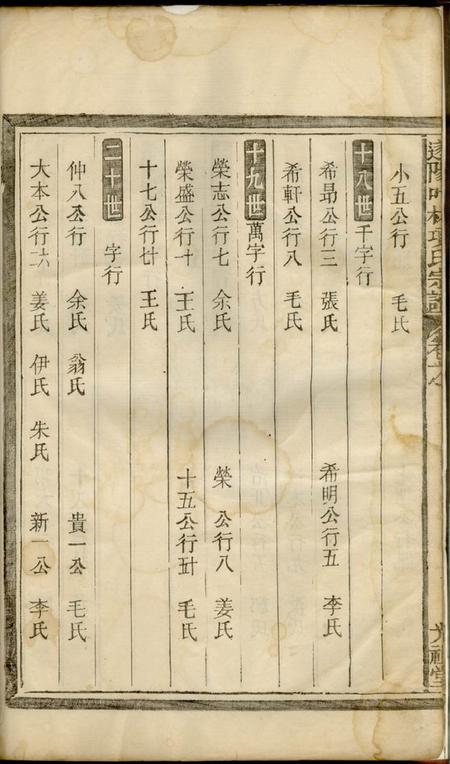 小五公行 毛氏
十八世 千字行
希昻公行三 張氏 希明公行五 李氏
希軒公行八 毛氏
十九世 萬字行
榮志公行七 余氏 榮 公行八 姜氏
榮盛公行十 王氏 十五公行卋 毛氏
十七公行廿 王氏
二十世 字行
仲八公行 余氏 翁氏 貴一公 毛氏
大本公行 姜氏 伊氏 朱氏 新一公 李氏
項氏宗譜